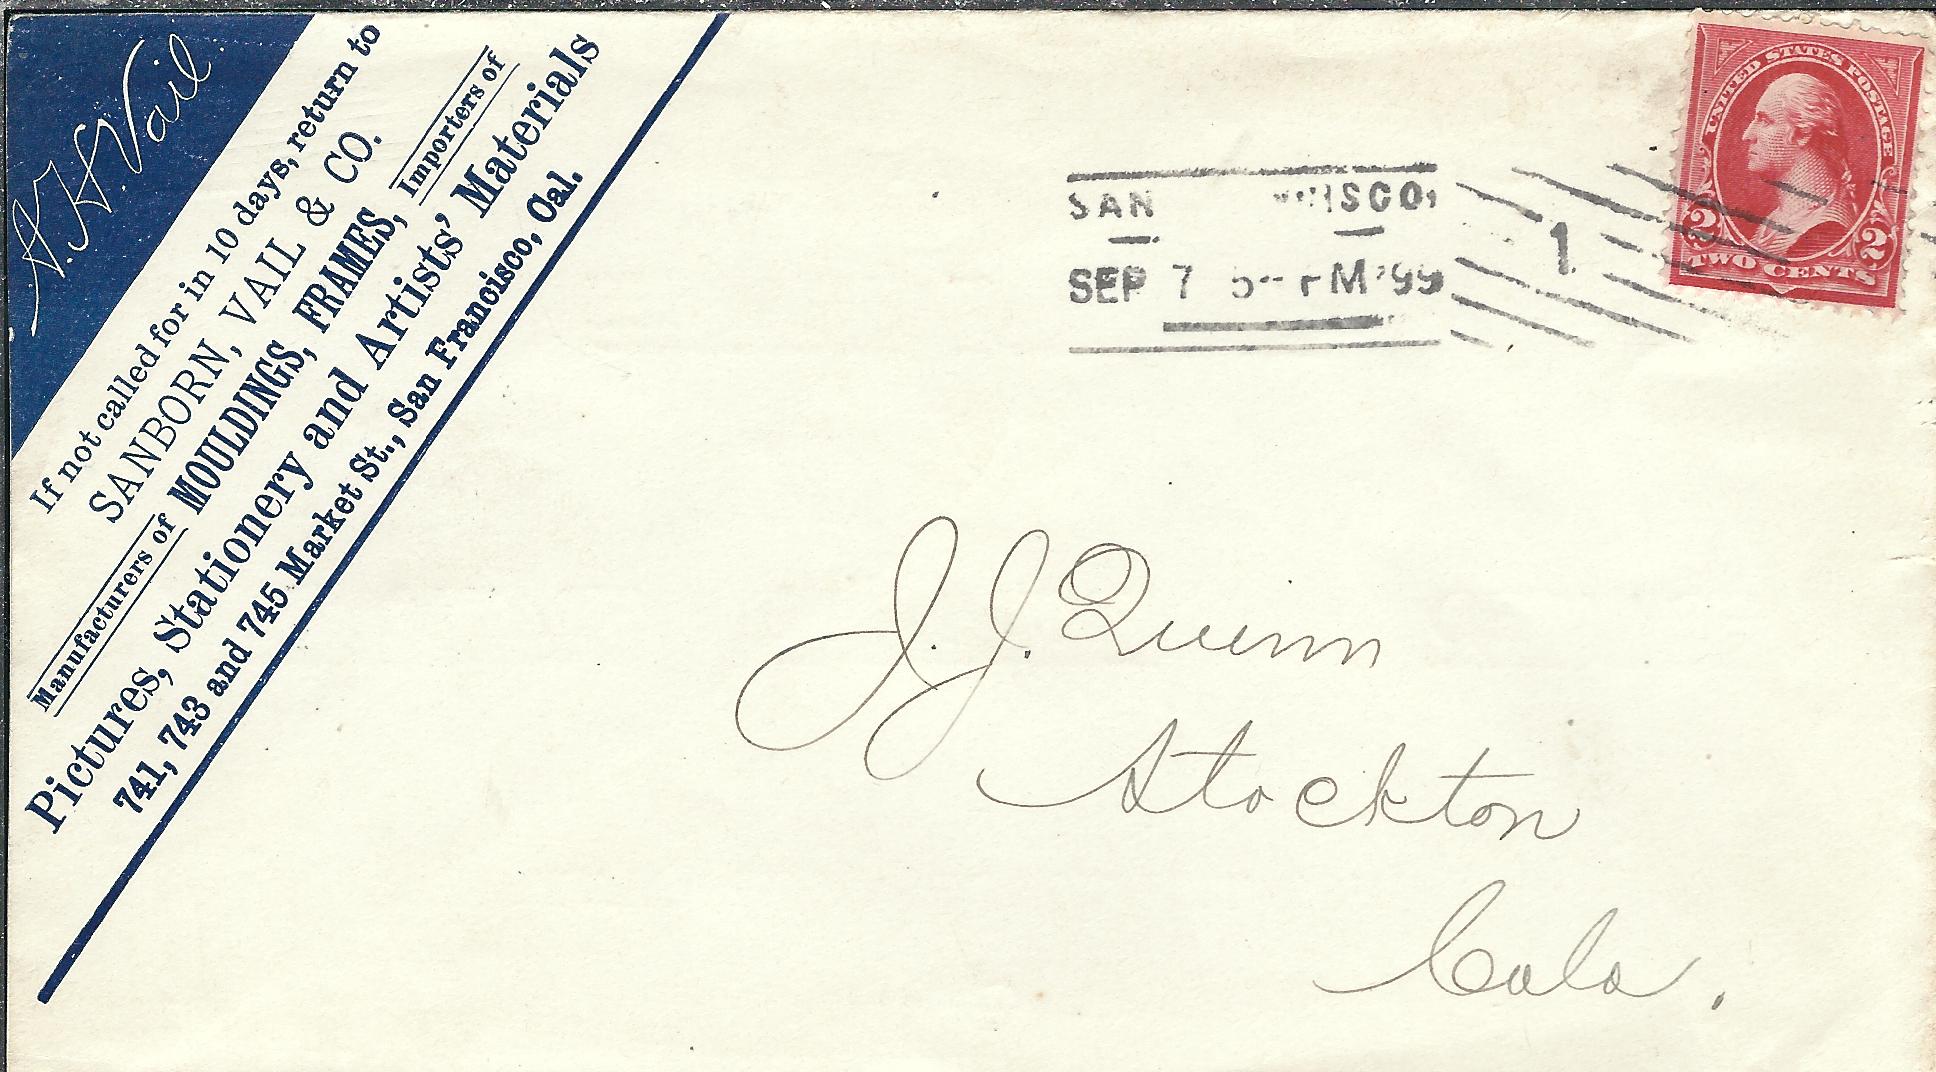 A. H. Vail.
If not called for in 10 days, return to
SANBORN, VAIL & CO.
Manufacturers of MOULDINGS, FRAMES, Importers of
Pictures, Stationery and Artists' Materials
741, 743 and 745 Market St., San Francisco, Cal.
SAN
SEP 7 5- PM '99
1
UNITED STATES POSTAGE
2 2
TWO CENTS
J. J. Quinn
Stockton
Cala.